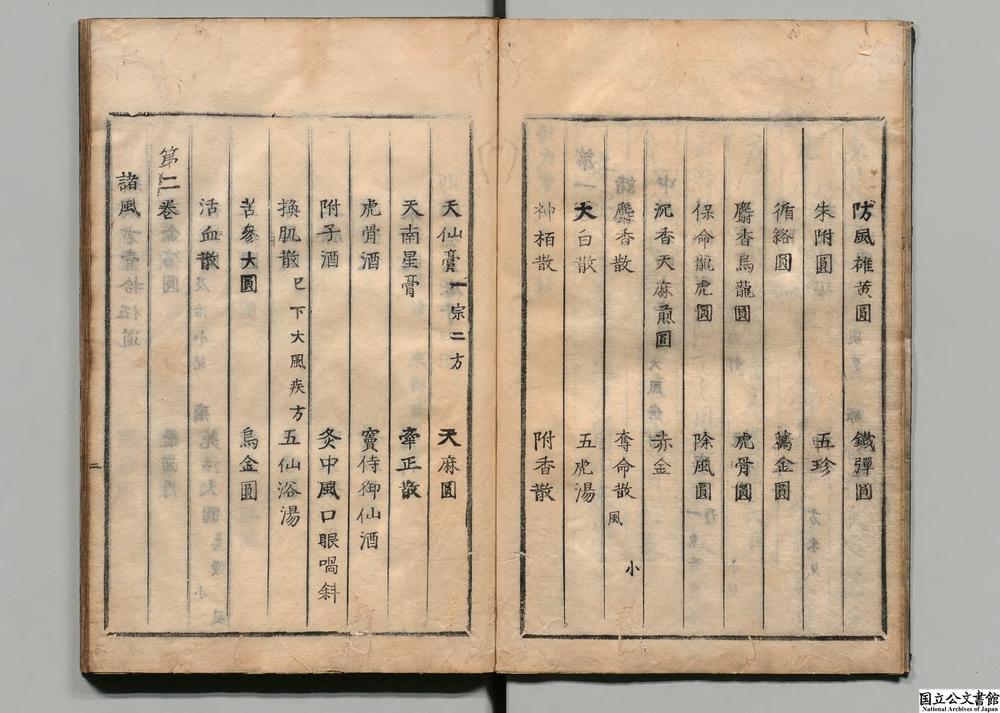 防風雄黄圓 鐵彈圓
朱附圓 五珍
循絡圓 萬金圓
麝香烏龍圓 虎骨圓
保命龍虎圓 除風圓
沉香天麻煎圓 赤金
麝香散 奪命散 風 小
大白散 五虎湯
神栢散 附香散
天仙膏一宗二方 天麻圓
天南星膏 牽正散
虎骨酒 竇侍御仙酒
附子酒 灸中風口眼喎斜
換肌散 巳下大風疾方 五仙浴湯
苦參大圓 烏金圓
活血散
第二卷
諸風
二
国立公文書館
National Archives of Japan